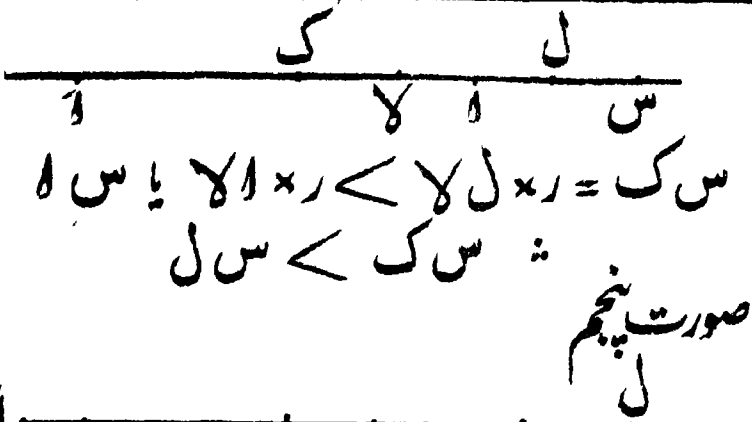 ل ک
س ا لا آ
س ک = ر × ل لا > ر × ا لا یا س ا
∴ س ک > س ل
صورت پنجم
ل